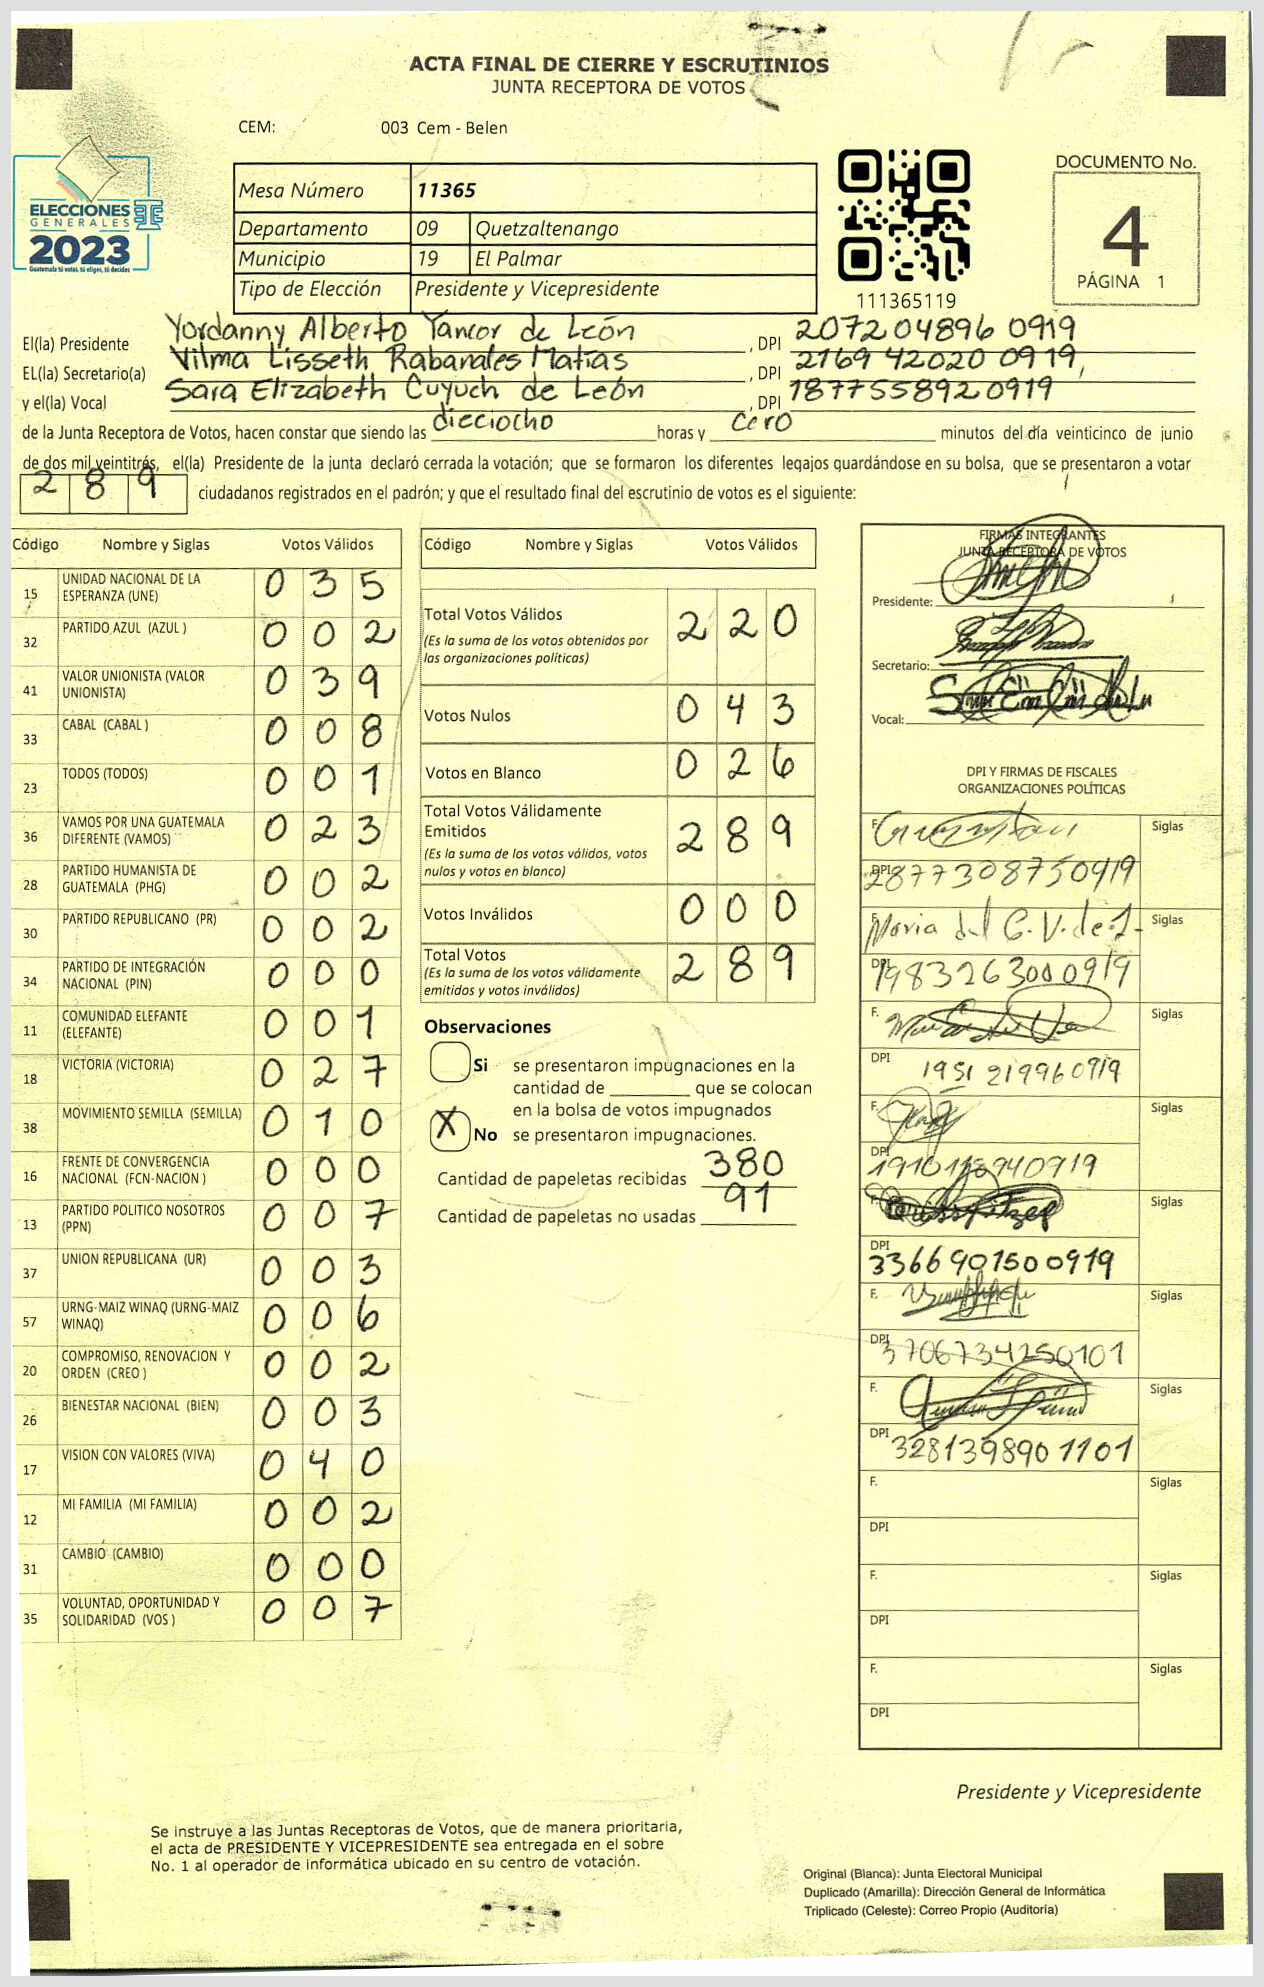 ACTA FINAL DE CIERRE Y ESCRUTINIOS
JUNTA RECEPTORA DE VOTOS
CEM: 003 Cem - Belen
ELECCIONES
GENERALES
2023
Guatemala tú votas, tú eliges, tú decides
Mesa Número 11365
Departamento 09 Quetzaltenango
Municipio 19 El Palmar
Tipo de Elección Presidente y Vicepresidente
111365119
DOCUMENTO No.
4
PÁGINA 1
El(la) Presidente Yordanny Alberto Yancor de León, DPI 207204896 0919
EL(la) Secretario(a) Vilma Lisseth Rabanales Matías, DPI 2169 42020 0919,
y el(la) Vocal Sara Elizabeth Cuyuch de León, DPI 187755892 0919
de la Junta Receptora de Votos, hacen constar que siendo las dieciocho horas y cero minutos del día veinticinco de junio
de dos mil veintitrés, el(la) Presidente de la junta declaró cerrada la votación; que se formaron los diferentes legajos guardándose en su bolsa, que se presentaron a votar
289 ciudadanos registrados en el padrón; y que el resultado final del escrutinio de votos es el siguiente:
Código Nombre y Siglas Votos Válidos
15 UNIDAD NACIONAL DE LA ESPERANZA (UNE) 035
32 PARTIDO AZUL (AZUL ) 002
41 VALOR UNIONISTA (VALOR UNIONISTA) 039
33 CABAL (CABAL ) 008
23 TODOS (TODOS) 001
36 VAMOS POR UNA GUATEMALA DIFERENTE (VAMOS) 023
28 PARTIDO HUMANISTA DE GUATEMALA (PHG) 002
30 PARTIDO REPUBLICANO (PR) 002
34 PARTIDO DE INTEGRACIÓN NACIONAL (PIN) 000
11 COMUNIDAD ELEFANTE (ELEFANTE) 001
18 VICTORIA (VICTORIA) 027
38 MOVIMIENTO SEMILLA (SEMILLA) 010
16 FRENTE DE CONVERGENCIA NACIONAL (FCN-NACION ) 000
13 PARTIDO POLITICO NOSOTROS (PPN) 007
37 UNION REPUBLICANA (UR) 003
57 URNG-MAIZ WINAQ (URNG-MAIZ WINAQ) 006
20 COMPROMISO, RENOVACION Y ORDEN (CREO ) 002
26 BIENESTAR NACIONAL (BIEN) 003
17 VISION CON VALORES (VIVA) 040
12 MI FAMILIA (MI FAMILIA) 002
31 CAMBIO (CAMBIO) 000
35 VOLUNTAD, OPORTUNIDAD Y SOLIDARIDAD (VOS ) 007
Código Nombre y Siglas Votos Válidos
Total Votos Válidos 220
(Es la suma de los votos obtenidos por
las organizaciones políticas)
Votos Nulos 043
Votos en Blanco 026
Total Votos Válidamente
Emitidos 289
(Es la suma de los votos válidos, votos
nulos y votos en blanco)
Votos Inválidos 000
Total Votos 289
(Es la suma de los votos válidamente
emitidos y votos inválidos)
Observaciones
Si se presentaron impugnaciones en la
cantidad de ________ que se colocan
en la bolsa de votos impugnados
X No se presentaron impugnaciones.
Cantidad de papeletas recibidas 380
Cantidad de papeletas no usadas 91
FIRMAS INTEGRANTES
JUNTA RECEPTORA DE VOTOS
Presidente:
Secretario:
Vocal:
DPI Y FIRMAS DE FISCALES
ORGANIZACIONES POLÍTICAS
F. Siglas
DPI 2877308750919
F. Maria del C. V. de L. Siglas
DPI 1983263000919
F. Siglas
DPI 1951 219960919
F. Siglas
DPI
F. Siglas
DPI 3366901500919
F. Siglas
DPI 3706734250101
F. Siglas
DPI 3281398901101
F. Siglas
DPI
F. Siglas
DPI
F. Siglas
DPI
Presidente y Vicepresidente
Se instruye a las Juntas Receptoras de Votos, que de manera prioritaria,
el acta de PRESIDENTE Y VICEPRESIDENTE sea entregada en el sobre
No. 1 al operador de informática ubicado en su centro de votación.
Original (Blanca): Junta Electoral Municipal
Duplicado (Amarilla): Dirección General de Informática
Triplicado (Celeste): Correo Propio (Auditoría)